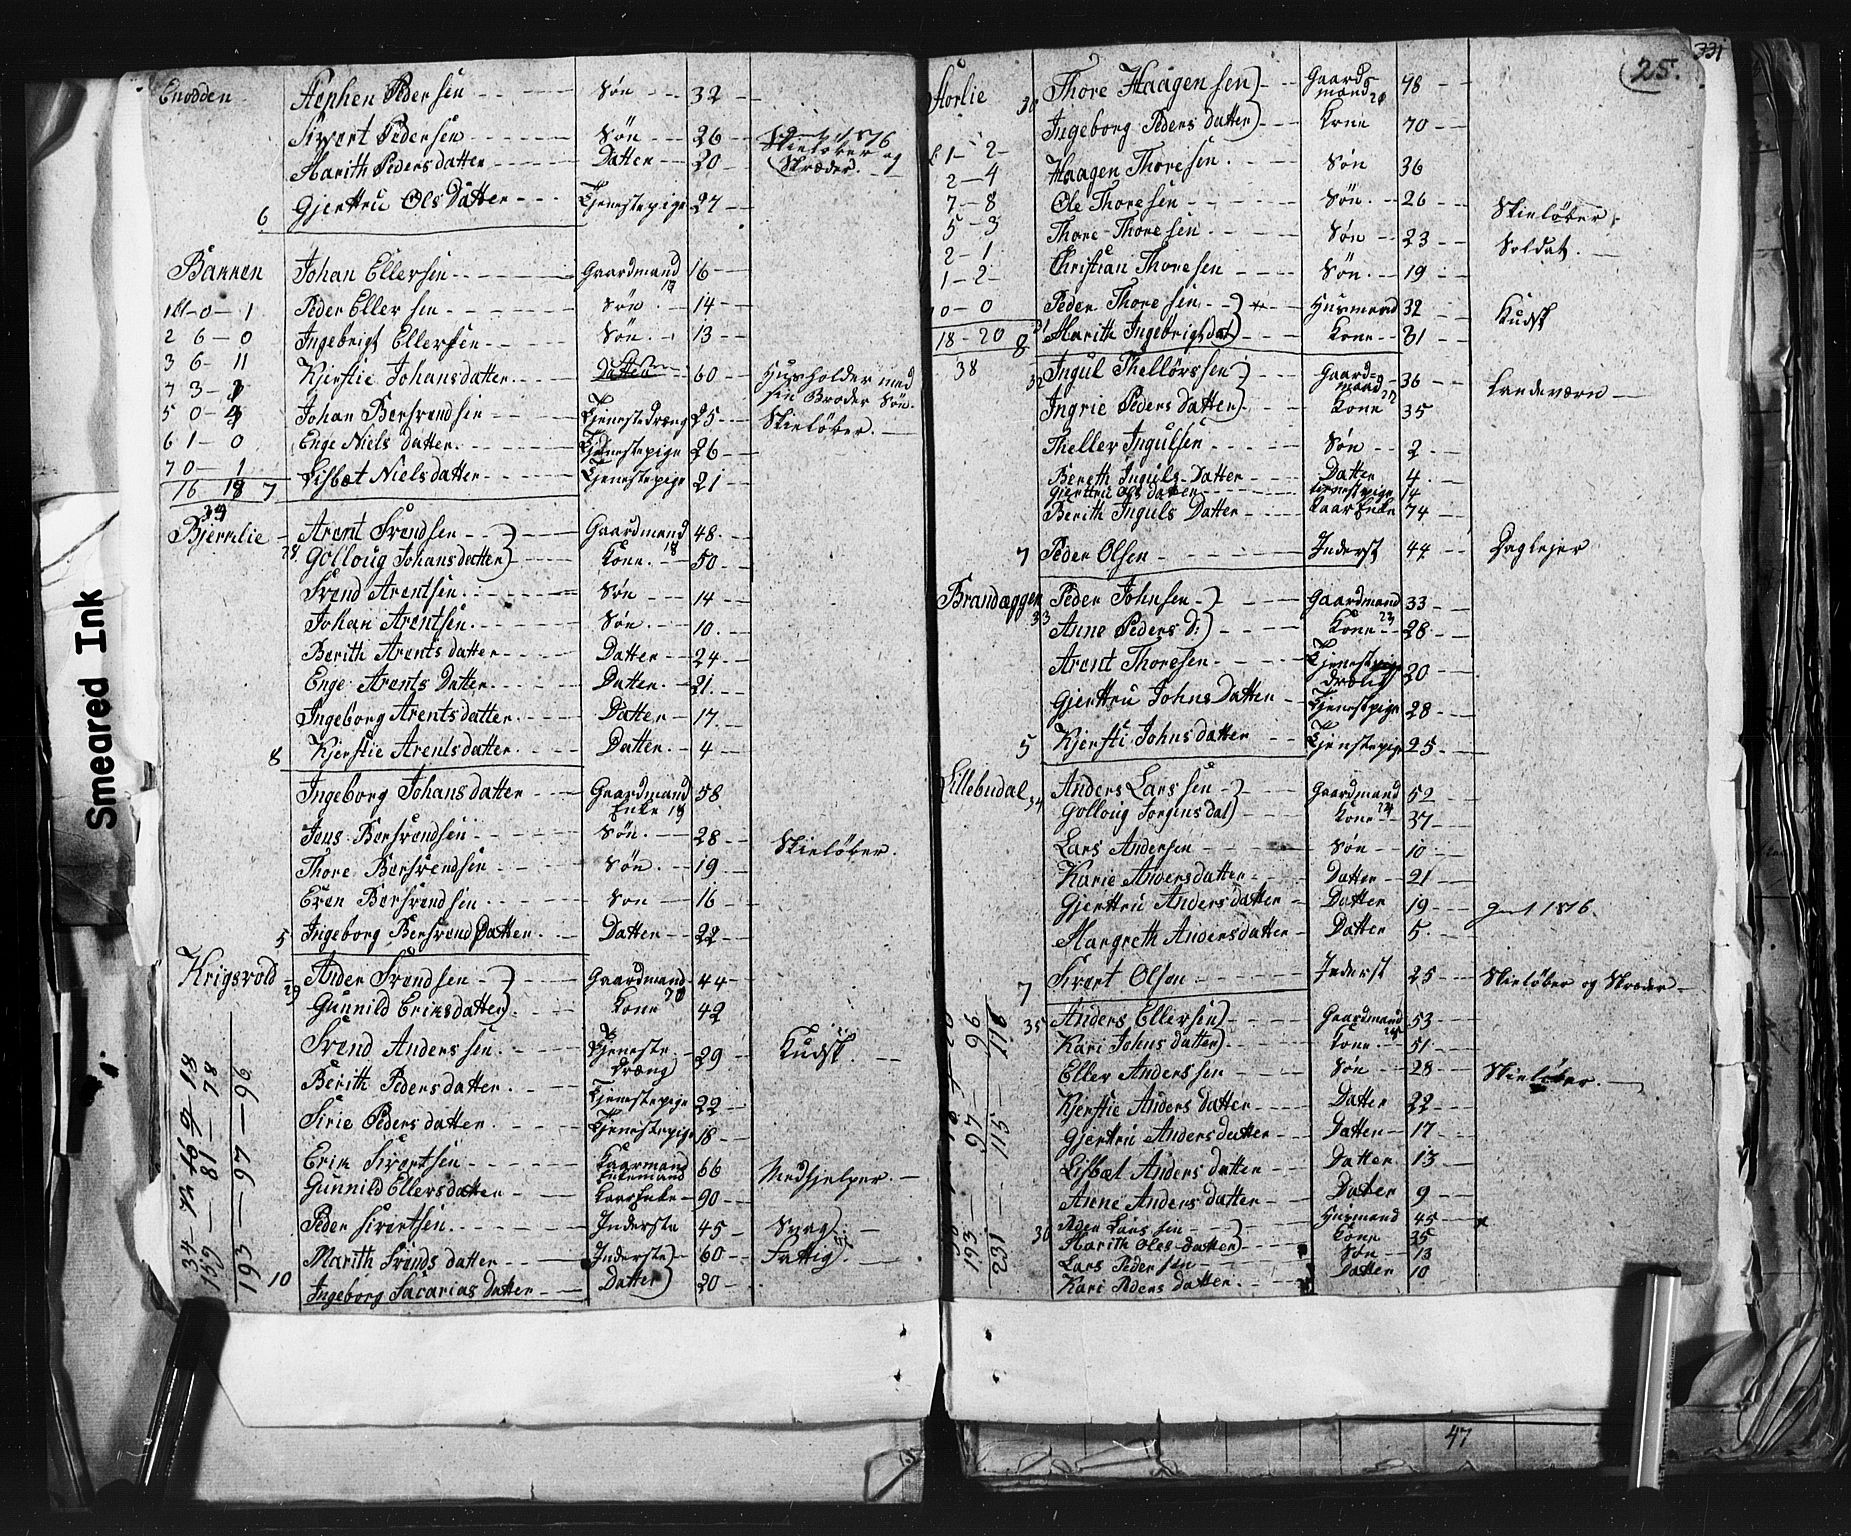 Enodden Stephen Pedersen Søn 32
Sivert Pedersen Søn 26 Skieløber og
Marith Pedersdatter Datter 20 Skræder.
6 Gjerttru Ols Datter Tjenestepige 27
Bannen Johan Ellersen Gaardmand 16
17
Peder Ellersen Søn 14
2 6-0 Ingebrigt Ellersen Søn 13
3 6 11 Kjerstie Johansdatter Datter 60 Husholder med
sin Broder Søn.
Johan Bersvendsen Tjenestedræng 25 Skieløber.
6 1-0 Enge Niels datter Tjenestepige 26
7 0-1 Lisbet Nielsdatter Tjenestepige 21
16-18 7
34
Bjerrelie Arent Svendsen Gaardmand 48
28 Golloug Johansdatter Kone 18 50
Svend Arentsen Søn 14
Johan Arentsen Søn 10
Berith Arentsdatter Datter 24
Enge Arents Datter Datter 21
Ingeborg Arentsdatter Datter 17
8 Kjerstie Arentsdatter Datter 4
Ingeborg Johansdatter Gaardmand 58
Enke 19
Jens Bersvendsen Søn 28 Skieløber.
Thore Bersvendsen Søn 19
Even Bersvendsen Søn 16
5 Ingeborg Bersvend Datter Datter 22
Krigsvold Ander Svendsen Gaardmand 44
29 Gunnild Eriksdatter Kone 20 42
Svend Anderssen Tjeneste 29 Kudsk.
dræng
Berith Pedersdatter Tjenestepige 22
Sirie Pedersdatter Tjenestepige 18
Erik Sivertsen Kaarmand 66 Medhjelper
Enkemand
Gunnild Ellersdatter Kaar Enke 90
Peder Sivertsen Inderste 45 Svag
Marith Svends datter Inderste 60 Fattig
10 Ingeborg Sacarias datter Datter 20
34
159-81-78
193-97-96
331
25.
Storlie 30 Thore Haagensen Gaards 48
mand 20
Ingeborg Peders datter Kone 70
1-2
2-4 Haagen Thoresen Søn 36
7-8 Ole Thoresen Søn 26 Skieløber
5-3 Thore Thoresen Søn 23 Soldat.
2-1
1-2 Christian Thoresen Søn 19
10-0 Peder Thoresen Husmand 32 Kudsk
18-20 8 31 Marith Ingebrigtsdat Kone 31
38
32 Ingul Thellørssen Gaard= 36 Landeværn
mand
Ingrie Peders datter Kone 35
Theller Ingulsen Søn 2
Bereth Inguls Datter Datter 4
Gjerttru Ols datter Tienestpige 14
Berith Inguls Datter Kaar Enke 74
7 Peder Olsen Inderst 44 Daglejer
Brandæggen Peder Johnsen Gaardmand 33
33 Anne Peders d: Kone 23 28
Arent Thoresen Tjeneste 20
dræng
Gjerttru Johns Datter Tjenestepige 28
5 Kjersti Johnsdatter Tjenestepige 25
Lillebudal 34 Anders Larssen Gaardmand 52
Golloug Jorgensdat Kone 24 37
Lars Andersen Søn 10
Karie Andersdatter Datter 21
Gjerttru Andersdatter Datter 19
Margreth Andersdatter Datter 5
7 Sivert Olsen Inderst 25 Skieløber og Skræder
35 Anders Ellersen Gaardmand 53
Kari Johns datter Kone 25 51
Eller Anderssen Søn 28 Skieløber.
Kjerstie Anders datter Datter 22
Gjerttru Andersdatter Datter 17
Lisbet Anders datter Datter 13
Anne Anders datter Datter 9
36 Peder Larssen Husmand 45
Marith Oles datter Kone 35
Lars Pedersen Søn 13
Kari Peders datter Datter 10
193-97-96
231-115-116
47
Smeared Ink